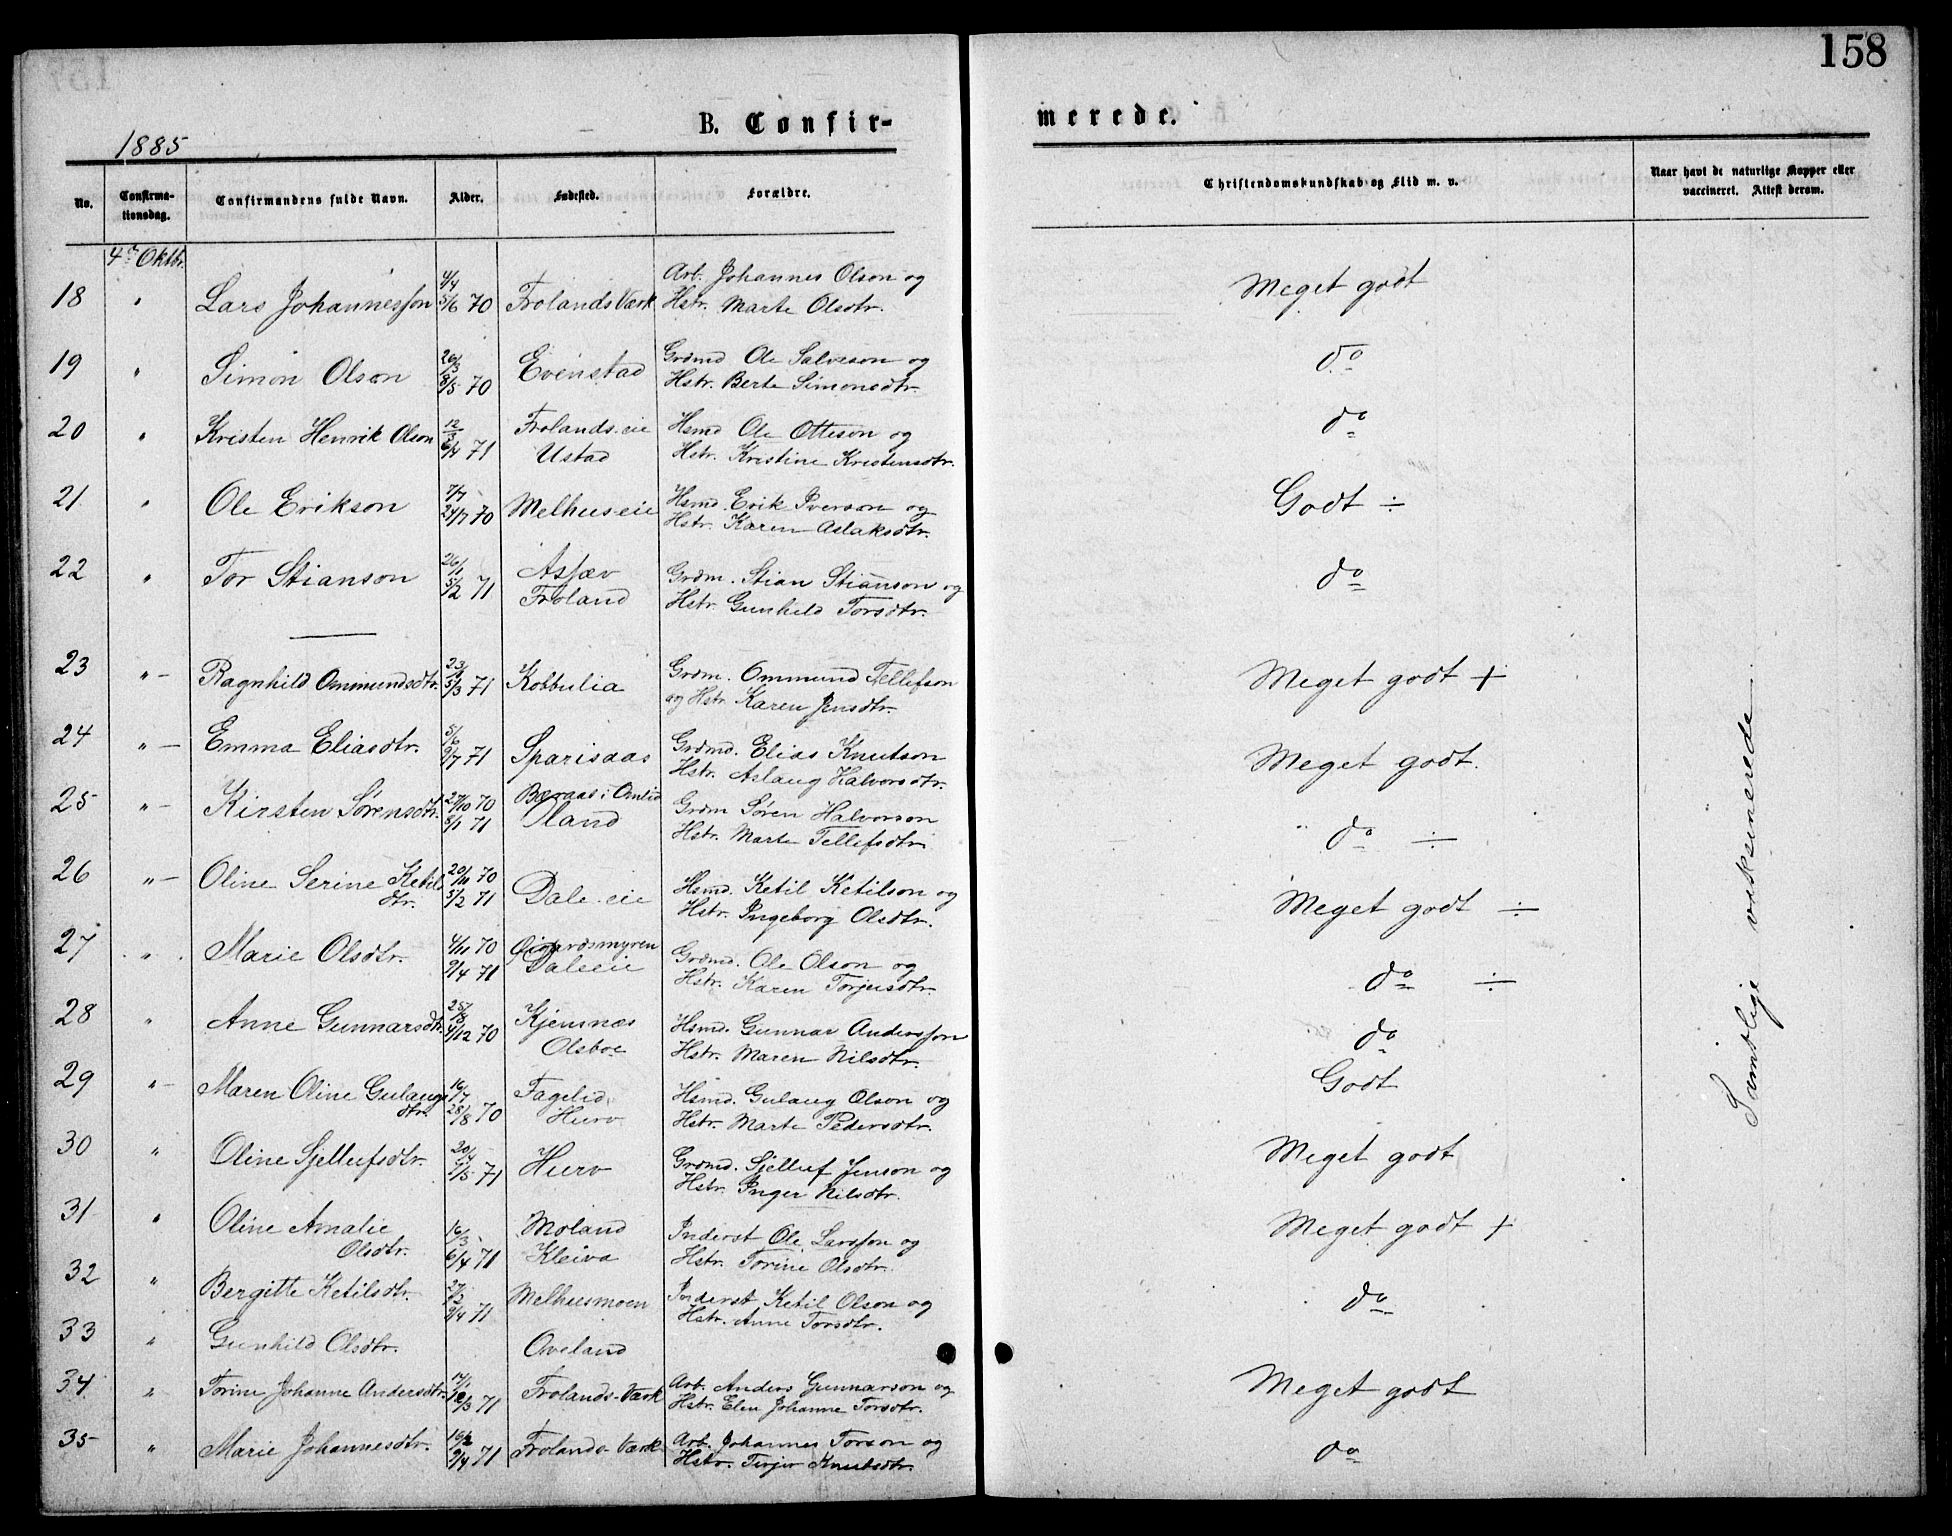 158
B. Confir-
merede.
1885
No.
Confirma-
tionsdag.
Confirmandens fulde Navn.
Alder.
Fødested.
Forældre.
Christendomskundskab og Flid m. v.
Naar havt de naturlige Kopper eller
vaccineret. Attest derom.
4de Oktbr.
18 " Lars Johannesson 4/4 5/6 70 Frolands Værk Arb. Johannes Olson og
Hstr. Marte Olsdtr. Meget godt
19 " Simon Olson 26/3 8/5 70 Evenstad Grdmd Ole Salveson og
Hstr. Berte Simonsdtr. do
20 " Kristen Henrik Olson 12/3 6/4 71 Frolands. eie
Ustad Hsmd Ole Otteson og
Hstr. Kristine Kristensdtr. do
21 " Ole Erikson 7/7 24/7 70 Melhus eie Hsmd. Erik Iverson og
Hstr. Karen Aslaksdtr. Godt ÷
22 " Tor Stianson 26/1 5/2 71
Froland Grdm. Stian Stianson og
Hstr. Gunhild Torsdtr. do
23 " Ragnhild Ommundsdtr. 5/3 71 Kobbulia Grdm. Ommund Tellefson
og Hstr. Karen Jensdtr. Meget godt +
24 " Emma Eliasdtr. 5/6 9/7 71 Sparisaas Grdmd. Elias Knutson
Hstr. Aslaug Halvorsdtr. Meget godt.
25 " Kirsten Sørensdtr. 27/10 70 8/1 71 i Omlid
Oland Grdm Søren Halvorson
Hstr. Marte Tellefsdtr. do ÷
26 " Oline Serine Ketils
dtr. 20/11 70 5/2 71 Dale. eie Hsmd. Ketil Ketilson og
Hstr. Ingeborg Olsdtr. Meget godt ÷
27 " Marie Olsdtr. 4/11 70 9/4 71
Dale eie Grdmd. Ole Olson og
Hstr. Karen Torjusdtr. do ÷
28 " Anne Gunnarsdtr. 25/8 4/12 70 Kjemnæs
Olsboe Hsmd. Gunnar Andersson
Hstr. Maren Nilsdtr. do
29 " Maren Oline Gulaugs
dtr. 16/7 28/8 70 Fagelid
Hurv Hsmd. Gulaug Olson og
Hstr. Marte Pedersdtr. Godt
30 " Oline Sjellufsdtr. 20/4 7/5 71 Hurv Grdmd. Sjelluf Jenson og
Hstr. Inger Nilsdtr. Meget godt
31 " Oline Amalie
Olsdtr. 16/3 6/4 71 Moland
Kleiva Inderst Ole Larsson og
Hstr. Torine Olsdtr. Meget godt +
32 " Bergitte Ketilsdtr. 9/4 71 Melhusmoen Inderst Ketil Olson og
Hstr. Anne Torsdtr. do
33 " Gunhild Olsdtr. Oveland
34 " Torine Johanne Andersdtr. 71 Frolands-Værk Arb. Anders Gunnarson og
Hstr. Elen Johanne Torsdtr. Meget godt
35 " Marie Johannesdtr. 16/2 9/4 71 Frolands-Værk Arb. Johannes Torson og
Hstr. Terjer Knutsdtr. do
Samtlige vaksinerede